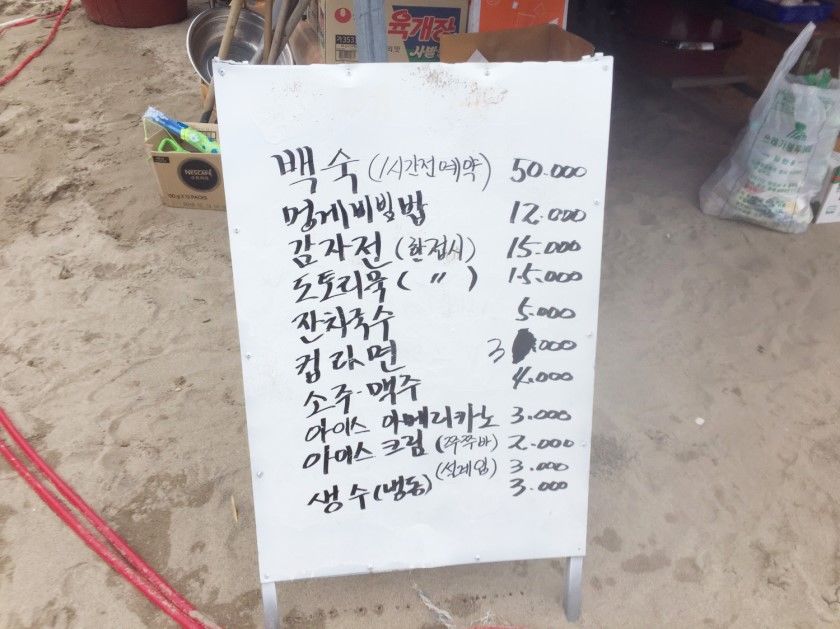 육개장
사발면
NESCAFÉ
백숙 (1시간전예약) 50.000
멍게비빔밥 12.000
감자전 (한접시) 15.000
도토리묵 ( 〃 ) 15.000
잔치국수 5.000
컵라면 3 .000
소주·맥주 4.000
아이스 아메리카노 3.000
아이스크림 (쭈쭈바) 2.000
(설레임) 3.000
생수(냉동) 3.000